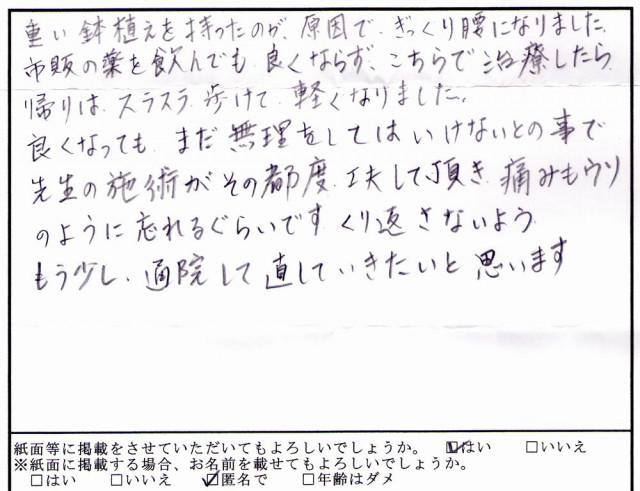 重い鉢植えを持ったのが、原因で、ぎっくり腰になりました。
市販の薬を飲んでも良くならず、こちらで治療したら
帰りは、スラスラ歩けて、軽くなりました。
良くなっても、まだ無理をしてはいけないとの事で
先生の施術がその都度、工夫して頂き、痛みもウソ
のように忘れるぐらいです くり返さないよう
もう少し、通院して直していきたいと思います
紙面等に掲載をさせていただいてもよろしいでしょうか。 ☑はい □いいえ
※紙面に掲載する場合、お名前を載せてもよろしいでしょうか。
□はい □いいえ ☑匿名で □年齢はダメ